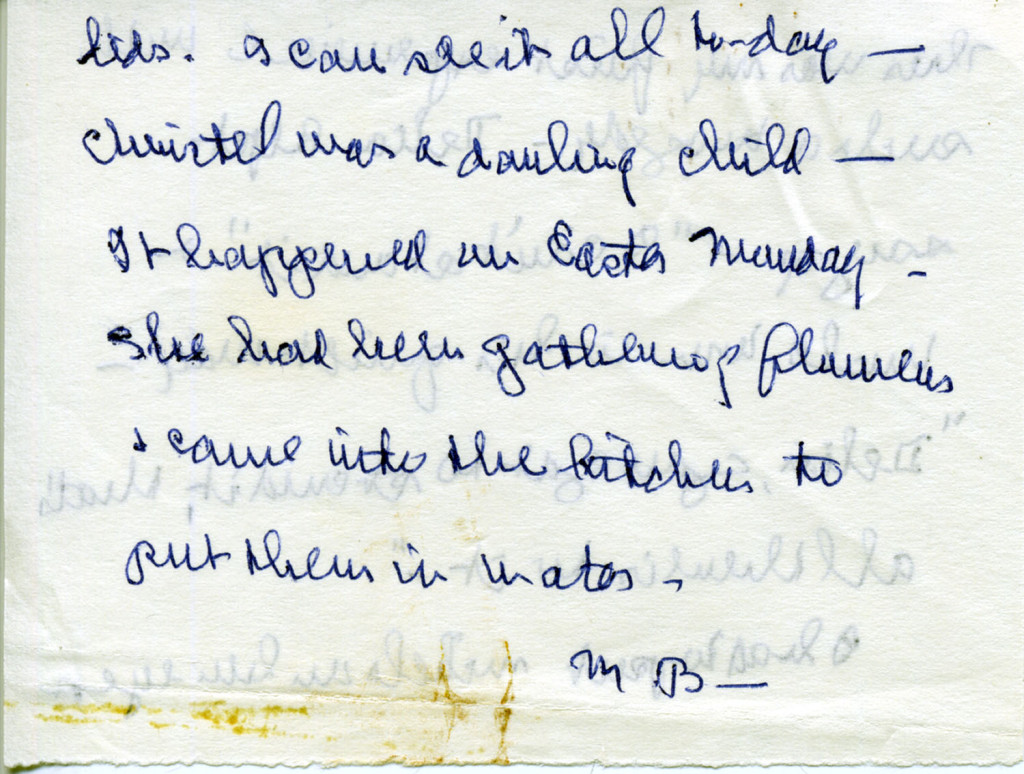 lids. I can see it all to-day —
Christel was a darling child —
It happened on Easter Monday -
She had been gathering flowers
& came into the kitchen to
put them in water -
M.B —